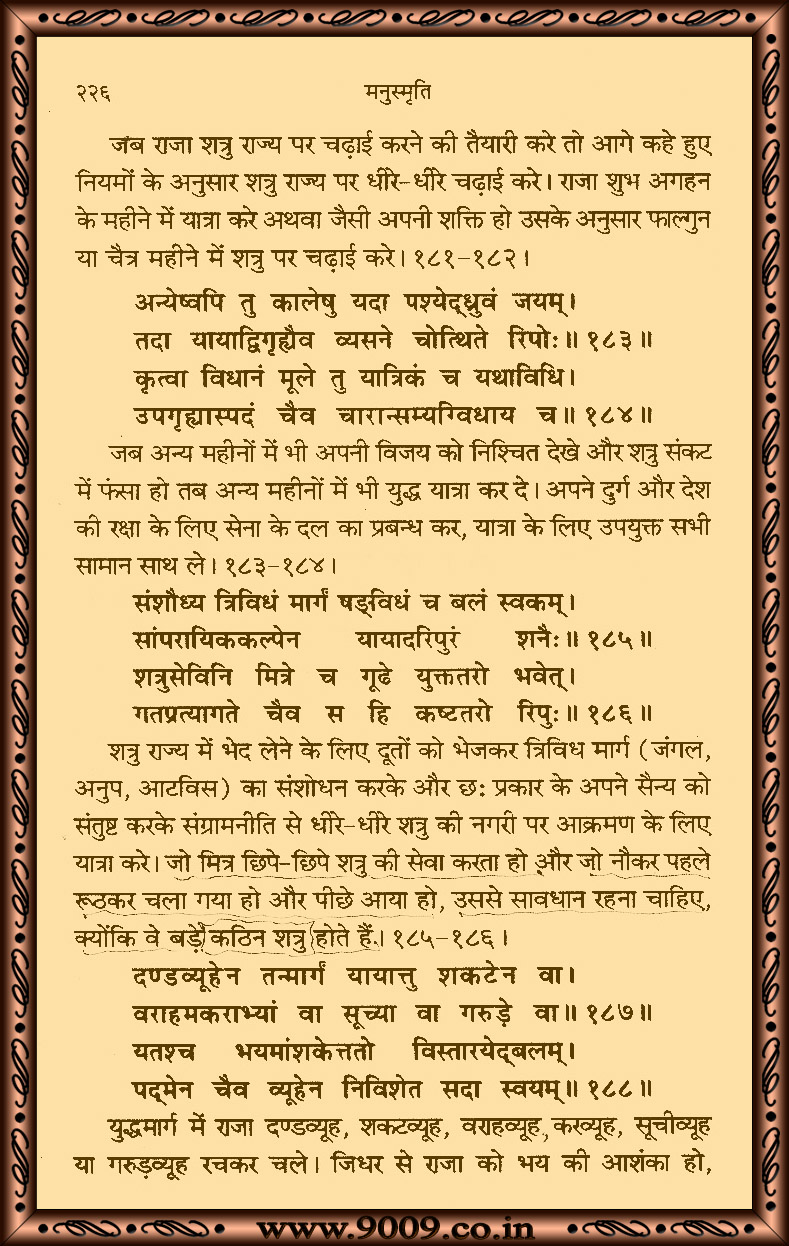 २२६ मनुस्मृति
जब राजा शत्रु राज्य पर चढ़ाई करने की तैयारी करे तो आगे कहे हुए
नियमों के अनुसार शत्रु राज्य पर धीरे-धीरे चढ़ाई करे। राजा शुभ अगहन
के महीने में यात्रा करे अथवा जैसी अपनी शक्ति हो उसके अनुसार फाल्गुन
या चैत्र महीने में शत्रु पर चढ़ाई करे। १८१-१८२।
अन्येष्वपि तु कालेषु यदा पश्येद्ध्रुवं जयम्।
तदा यायाद्विगृह्यैव व्यसने चोत्थिते रिपोः॥ १८३॥
कृत्वा विधानं मूले तु यात्रिकं च यथाविधि।
उपगृह्यास्पदं चैव चारान्सम्यग्विधाय च॥ १८४॥
जब अन्य महीनों में भी अपनी विजय को निश्चित देखे और शत्रु संकट
में फंसा हो तब अन्य महीनों में भी युद्ध यात्रा कर दे। अपने दुर्ग और देश
की रक्षा के लिए सेना के दल का प्रबन्ध कर, यात्रा के लिए उपयुक्त सभी
सामान साथ ले। १८३-१८४।
संशौध्य त्रिविधं मार्गं षड्विधं च बलं स्वकम्।
सांपरायिककल्पेन यायादरिपुरं शनैः॥ १८५॥
शत्रुसेविनि मित्रे च गूढे युक्ततरो भवेत्।
गतप्रत्यागते चैव स हि कष्टतरो रिपुः॥ १८६॥
शत्रु राज्य में भेद लेने के लिए दूतों को भेजकर त्रिविध मार्ग (जंगल,
अनुप, आटविस) का संशोधन करके और छः प्रकार के अपने सैन्य को
संतुष्ट करके संग्रामनीति से धीरे-धीरे शत्रु की नगरी पर आक्रमण के लिए
यात्रा करे। जो मित्र छिपे-छिपे शत्रु की सेवा करता हो और जो नौकर पहले
रूठकर चला गया हो और पीछे आया हो, उससे सावधान रहना चाहिए,
क्योंकि वे बड़े कठिन शत्रु होते हैं। १८५-१८६।
दण्डव्यूहेन तन्मार्गं यायात्तु शकटेन वा।
वराहमकराभ्यां वा सूच्या वा गरुड़े वा॥ १८७॥
यतश्च भयमांशकेत्ततो विस्तारयेद्बलम्।
पद्मेन चैव व्यूहेन निविशेत सदा स्वयम्॥ १८८॥
युद्धमार्ग में राजा दण्डव्यूह, शकटव्यूह, वराहव्यूह, करव्यूह, सूचीव्यूह
या गरुड़व्यूह रचकर चले। जिधर से राजा को भय की आशंका हो,
www.9009.co.in